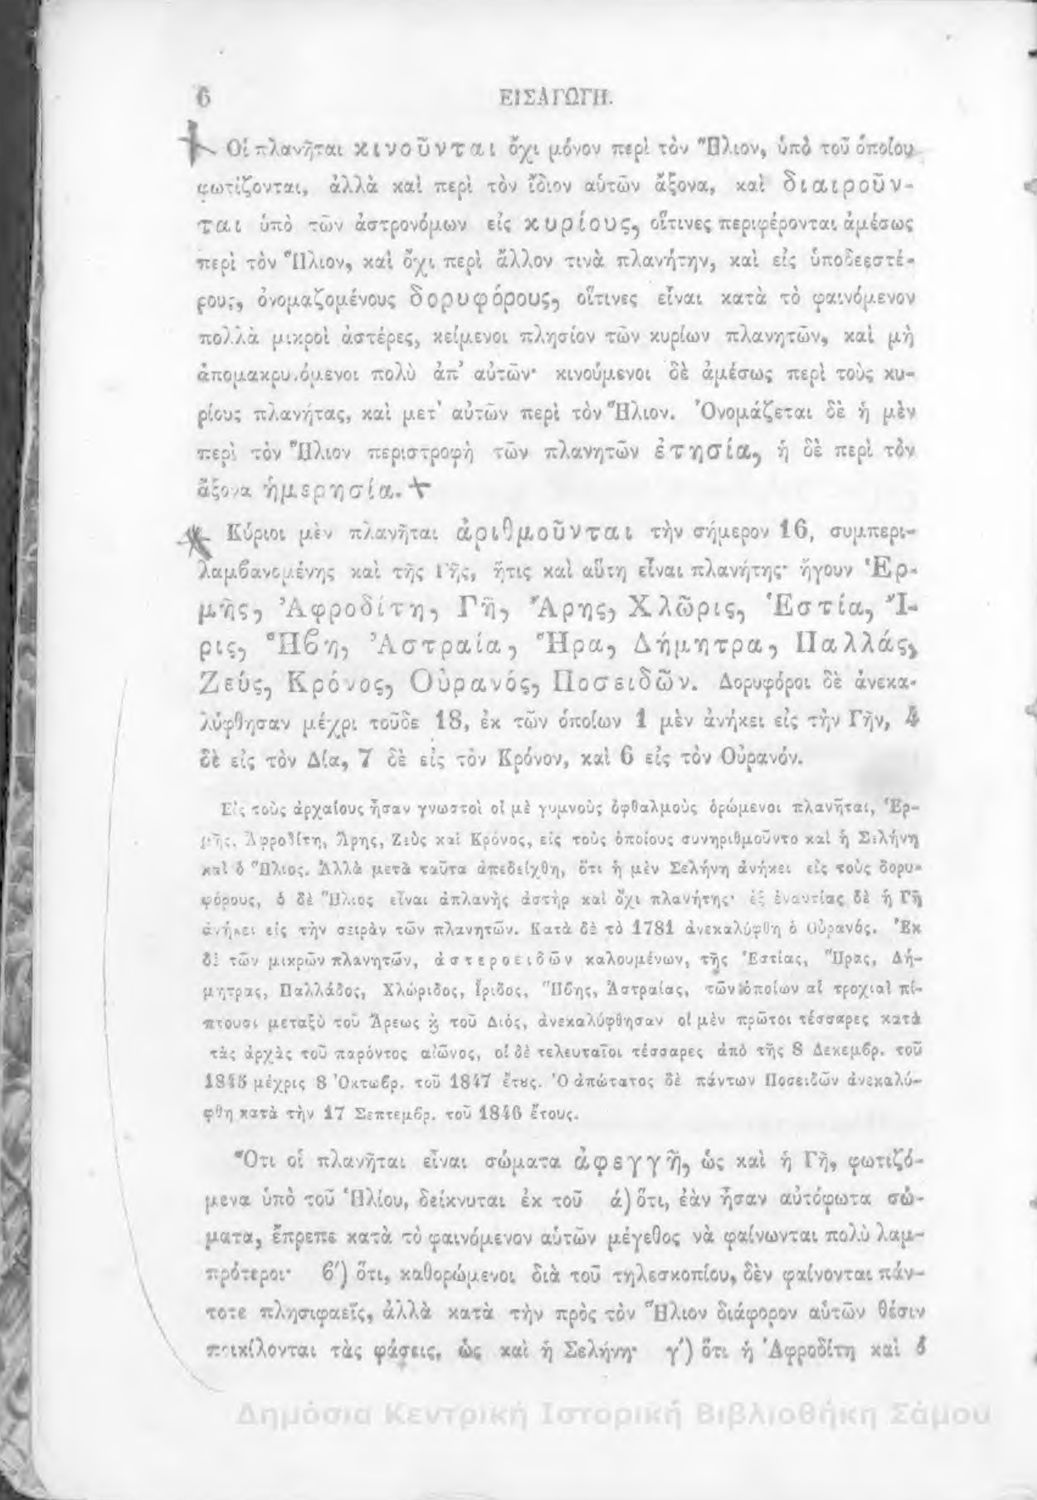 6 ΕΙΣΑΓΩΓΗ.
Οἱ πλανῆται κινοῦνται ὄχι μόνον περὶ τὸν Ἥλιον, ὑπὸ τοῦ ὁποίου
φωτίζονται, ἀλλὰ καὶ περὶ τὸν ἴδιον αὑτῶν ἄξονα, καὶ διαιροῦν-
ται ὑπὸ τῶν ἀστρονόμων εἰς κυρίους, οἵτινες περιφέρονται ἀμέσως
περὶ τὸν Ἥλιον, καὶ ὄχι περὶ ἄλλον τινὰ πλανήτην, καὶ εἰς ὑποδεεστέ-
ρους, ὀνομαζομένους δορυφόρους, οἵτινες εἶναι κατὰ τὸ φαινόμενον
πολλὰ μικροὶ ἀστέρες, κείμενοι πλησίον τῶν κυρίων πλανητῶν, καὶ μὴ
ἀπομακρυνόμενοι πολὺ ἀπ' αὐτῶν· κινούμενοι δὲ ἀμέσως περὶ τοὺς κυ-
ρίους πλανήτας, καὶ μετ' αὐτῶν περὶ τὸν Ἥλιον. Ὀνομάζεται δὲ ἡ μὲν
περὶ τὸν Ἥλιον περιστροφὴ τῶν πλανητῶν ἐτησία, ἡ δὲ περὶ τὸν
ἄξονα ἡμερησία.
Κύριοι μὲν πλανῆται ἀριθμοῦνται τὴν σήμερον 16, συμπερι-
λαμβανομένης καὶ τῆς Γῆς, ἥτις καὶ αὕτη εἶναι πλανήτης· ἤγουν Ἑρ-
μῆς, Ἀφροδίτη, Γῆ, Ἄρης, Χλῶρις, Ἑστία, Ἶ-
ρις, Ἥβη, Ἀστραία, Ἥρα, Δήμητρα, Παλλάς,
Ζεὺς, Κρόνος, Οὐρανός, Ποσειδῶν. Δορυφόροι δὲ ἀνεκα-
λύφθησαν μέχρι τοῦδε 18, ἐκ τῶν ὁποίων 1 μὲν ἀνήκει εἰς τὴν Γῆν, 4
δὲ εἰς τὸν Δία, 7 δὲ εἰς τὸν Κρόνον, καὶ 6 εἰς τὸν Οὐρανόν.
Εἰς τοὺς ἀρχαίους ἦσαν γνωστοὶ οἱ μὲ γυμνοὺς ὀφθαλμοὺς ὁρώμενοι πλανῆται, Ἑρ-
μῆς, Ἀφροδίτη, Ἄρης, Ζεὺς καὶ Κρόνος, εἰς τοὺς ὁποίους συνηριθμοῦντο καὶ ἡ Σελήνη
καὶ ὁ Ἥλιος. Ἀλλὰ μετὰ ταῦτα ἀπεδείχθη, ὅτι ἡ μὲν Σελήνη ἀνήκει εἰς τοὺς δορυ-
φόρους, ὁ δὲ Ἥλιος εἶναι ἀπλανὴς ἀστὴρ καὶ ὄχι πλανήτης· ἐξ ἐναντίας δὲ ἡ Γῆ
ἀνήκει εἰς τὴν σειρὰν τῶν πλανητῶν. Κατὰ δὲ τὸ 1781 ἀνεκαλύφθη ὁ Οὐρανός. Ἐκ
δὲ τῶν μικρῶν πλανητῶν, ἀστεροειδῶν καλουμένων, τῆς Ἑστίας, Ἥρας, Δή-
μητρας, Παλλάδος, Χλώριδος, Ἴριδος, Ἥβης, Ἀστραίας, τῶν ὁποίων αἱ τροχιαὶ πί-
πτουσι μεταξὺ τοῦ Ἄρεως ϗ τοῦ Διός, ἀνεκαλύφθησαν οἱ μὲν πρῶτοι τέσσαρες κατὰ
τὰς ἀρχὰς τοῦ παρόντος αἰῶνος, οἱ δὲ τελευταῖοι τέσσαρες ἀπὸ τῆς 8 Δεκεμβρ. τοῦ
1845 μέχρις 8 Ὀκτωβρ. τοῦ 1847 ἔτους. Ὁ ἀπώτατος δὲ πάντων Ποσειδῶν ἀνεκαλύ-
φθη κατὰ τὴν 17 Σεπτεμβρ. τοῦ 1846 ἔτους.
Ὅτι οἱ πλανῆται εἶναι σώματα ἀφεγγῆ, ὡς καὶ ἡ Γῆ, φωτιζό-
μενα ὑπὸ τοῦ Ἡλίου, δείκνυται ἐκ τοῦ ά) ὅτι, ἐὰν ἦσαν αὐτόφωτα σώ-
ματα, ἔπρεπε κατὰ τὸ φαινόμενον αὑτῶν μέγεθος νὰ φαίνωνται πολὺ λαμ-
πρότεροι· β') ὅτι, καθορώμενοι διὰ τοῦ τηλεσκοπίου, δὲν φαίνονται πάν-
τοτε πλησιφαεῖς, ἀλλὰ κατὰ τὴν πρὸς τὸν Ἥλιον διάφορον αὑτῶν θέσιν
ποικίλονται τὰς φάσεις, ὡς καὶ ἡ Σελήνη· γ') ὅτι ἡ Ἀφροδίτη καὶ ὁ
Δημόσια Κεντρική Ιστορική Βιβλιοθήκη Σάμου